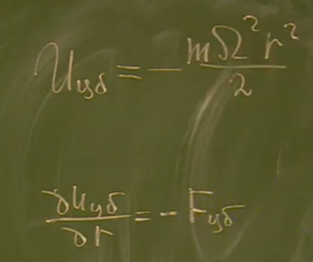 U_{цб} = - \frac{mΩ^2 r^2}{2}
\frac{∂U_{цб}}{∂r} = - F_{цб}